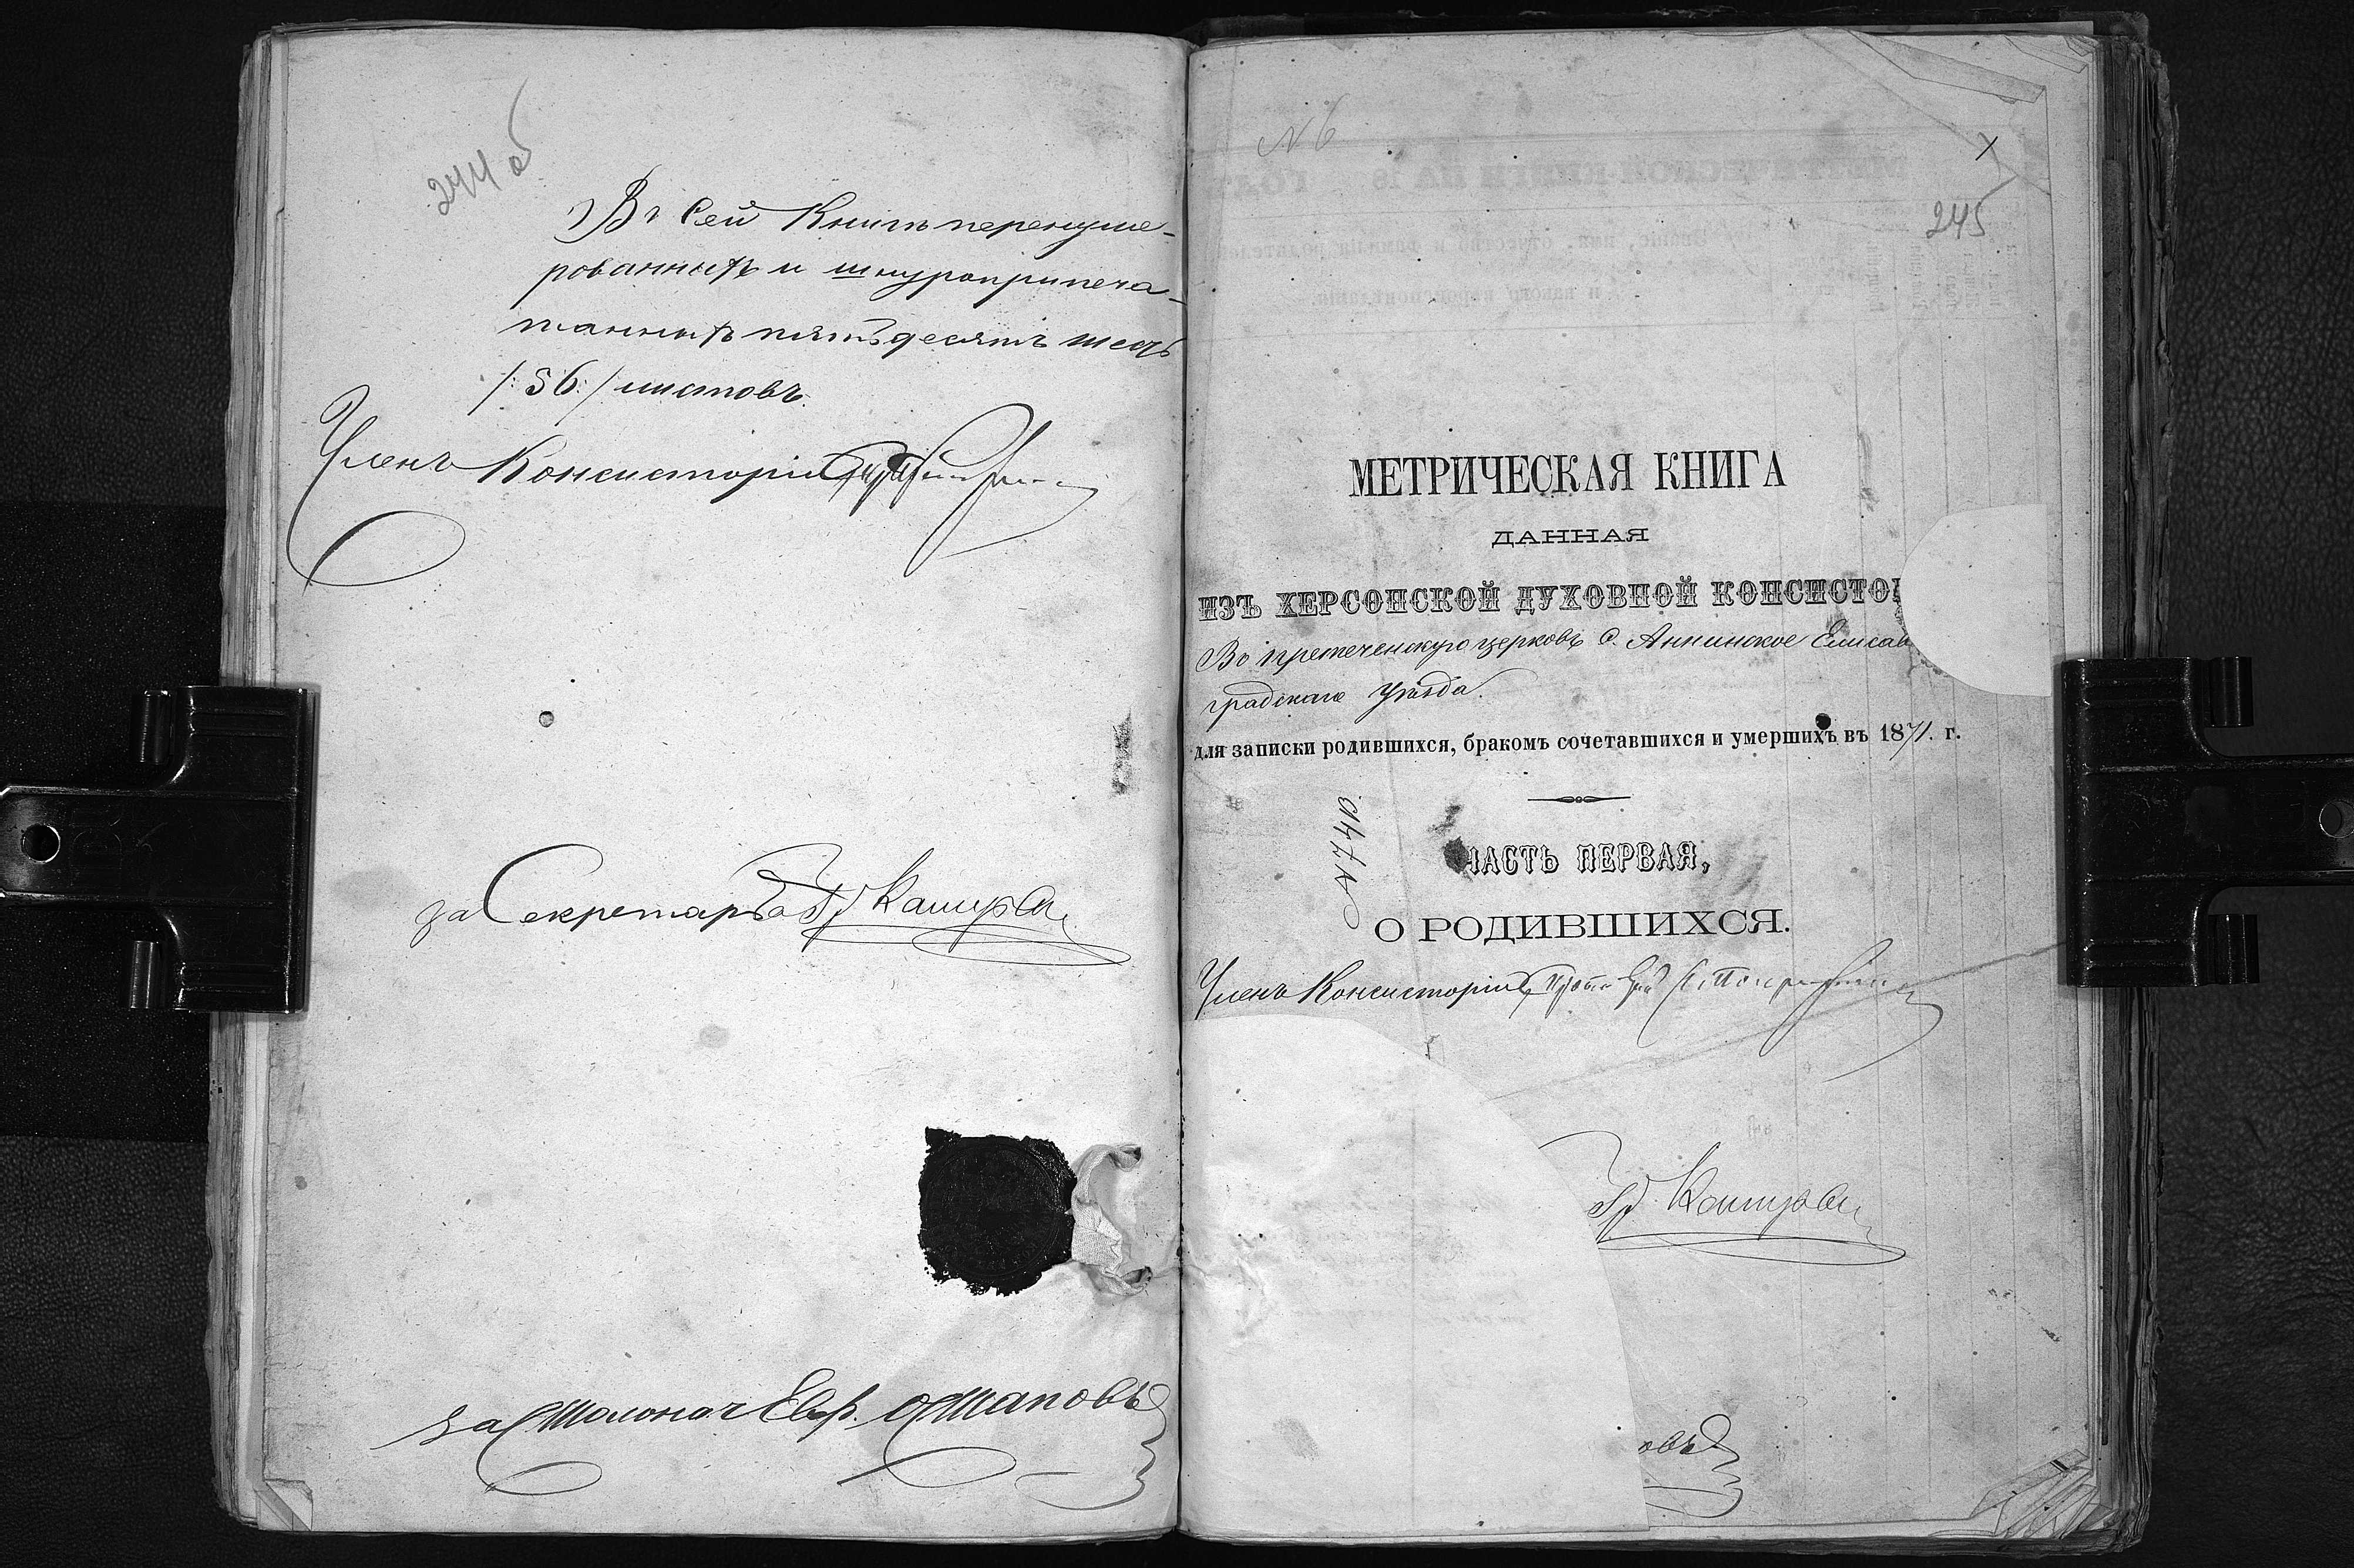 244 об
Въ сей Книгѣ перенуме-
рованныхъ и шнуроприпеча-
танныхъ пятьдесятъ шесть
/:56:/ листовъ.
Членъ Консисторіи
за Секретаря Гр Кашубы
за Столонач Евф. Остаповъ
N 6
245
МЕТРИЧЕСКАЯ КНИГА
ДАННАЯ
ИЗЪ ХЕРСОНСКОЙ ДУХОВНОЙ КОНСИСТО
Въ предтеченскую церковь с. Аннинское Елисав
градскаго Уѣзда.
для записки родившихся, бракомъ сочетавшихся и умершихъ въ 1871. г.
N 740
ЧАСТЬ ПЕРВАЯ,
О РОДИВШИХСЯ.
Членъ Консисторіи
овъ